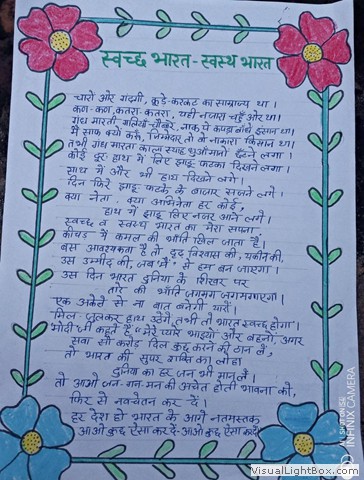 स्वच्छ भारत - स्वस्थ भारत
चारो ओर गंदगी, कूड़े-करकट का साम्राज्य था।
कण-कण, कतरा-कतरा, यही नजारा चहुँ ओर था।
गंध मारती गलियाँ-चौबारे, नाक पे कपड़ा बाँधे इंसान था।
मैं साफ क्यों करूँ, जिम्मेदार तो वो नाकारा किसान था।
तभी गंध मारता काला स्याह धुआँ छँटने लगा।
कोई दूर हाथ में लिए झाड़ू फटका दिखने लगा।
साथ में और भी हाथ दिखने लगे।
दिन फिरे झाड़ू फटके के बाजार सजने लगे।
क्या नेता, क्या अभिनेता हर कोई,
हाथ में झाड़ू लिए नजर आने लगे।
स्वच्छ व स्वस्थ भारत का मेरा सपना,
कीचड़ में कमल की भाँति खिल जाता है।
बस आवश्यकता है तो दृढ़ विश्वास की, यकीन की,
उस उम्मीद की, जब "मैं" से हम बन जाएगा।
उस दिन भारत दुनिया के शिखर पर
तारे की भाँति जगमग जगमगाएगा।
एक अकेले से ना बात बनेगी यारों।
मिल-जुलकर हाथ उठेंगे, तभी तो भारत स्वच्छ होगा।
मोदी जी कहते हैं "मेरे प्यारे भाइयों और बहनों, अगर
सवा सौ करोड़ दिल कुछ करने की ठान लें,
तो भारत की सुपर शक्ति का लोहा
दुनिया का हर जन भी मान लें।
तो आओ जन-गन-मन की अचेत होती भावना को,
फिर से नवचेतन कर दें।
हर देश हो भारत के आगे नतमस्तक
आओ कुछ ऐसा कर दें-आओ कुछ ऐसा कर दें।
INFINIX CAMERA
VisualLightBox.com